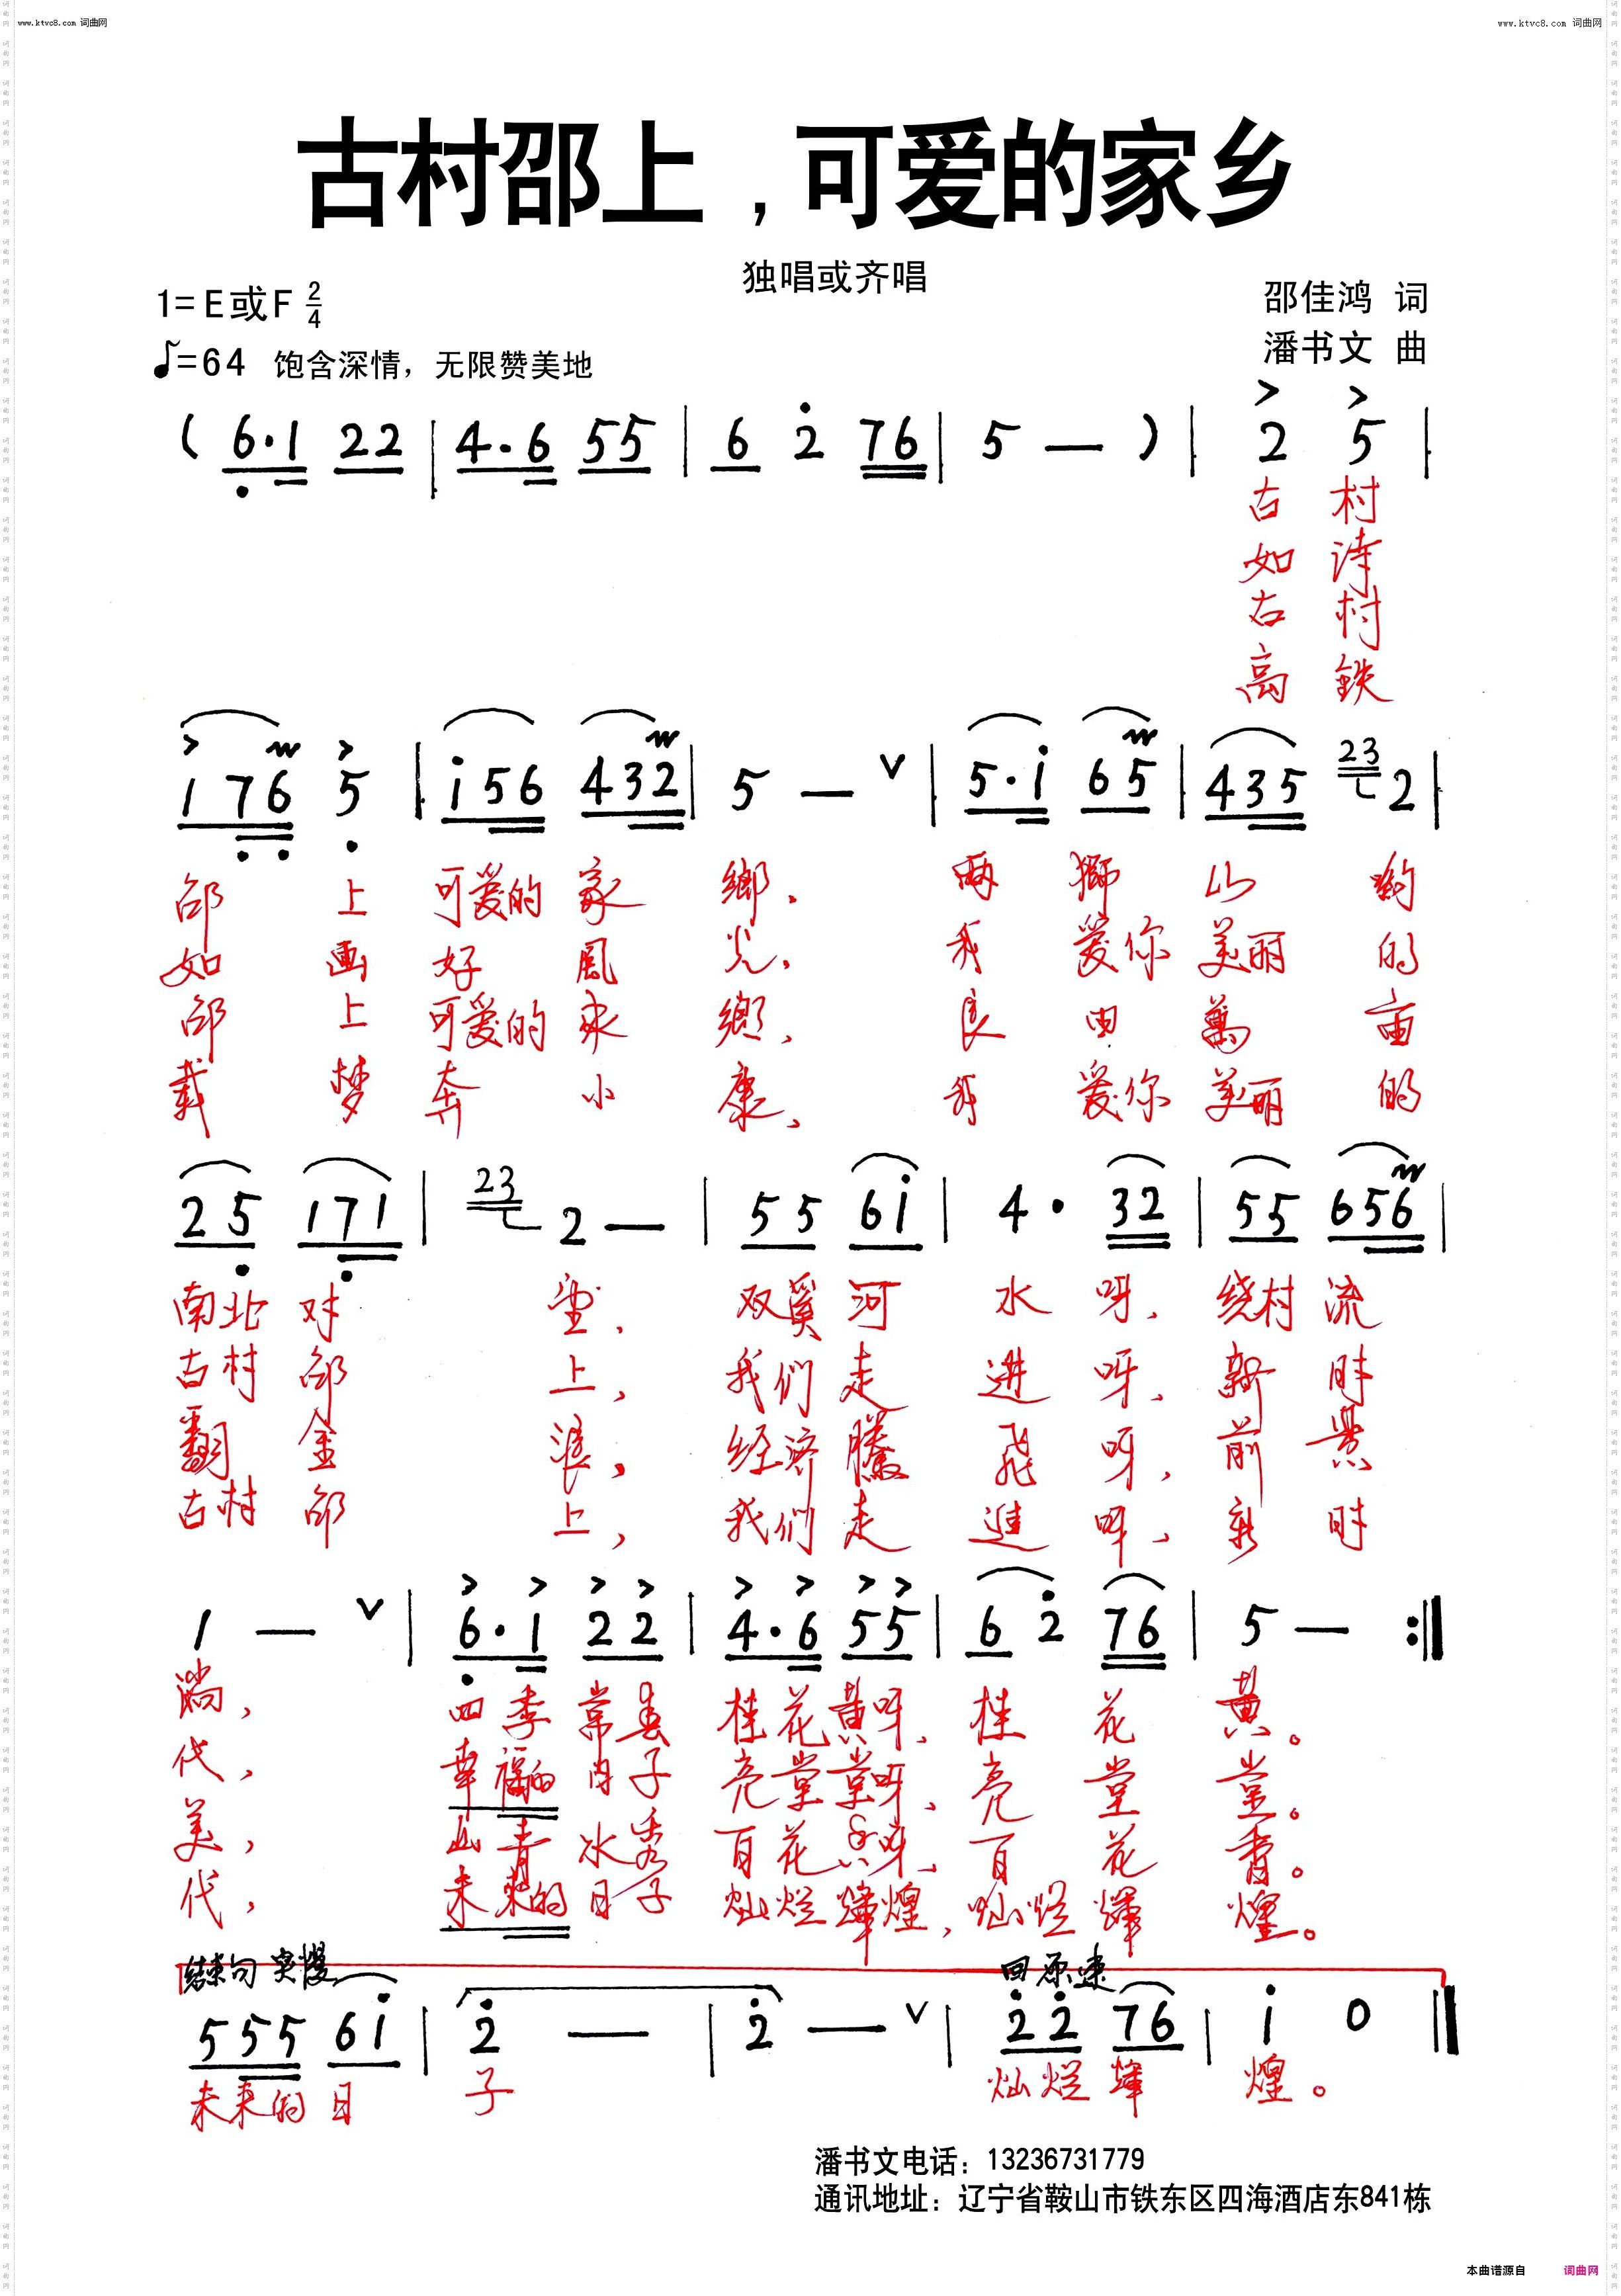 www.ktvc8.com 词曲网
www.ktvc8.com 词曲网
古村邵上，可爱的家乡
独唱或齐唱
1=E或F 2/4
邵佳鸿 词
♩=64 饱含深情，无限赞美地
潘书文 曲
( 6·1 22 | 4·6 55 | 6 2 76 | 5 — ) | 2 5 |
古 村
如 诗
古 村
高 铁
1 7 6 5 | i 5 6 4 3 2 | 5 — ∨ | 5·i 6 5 | 4 3 5 23 2 |
邵 上 可爱的 家 鄉， 两 狮 山 哟
如 画 好 風 光， 我 爱你 美丽 的
邵 上 可爱的 家 鄉， 良 田 萬 亩
载 梦 奔 小 康， 我 爱你 美丽 的
2 5 1 7 1 | 23 2 — | 5 5 6 i | 4 · 3 2 | 5 5 6 5 6 |
南北 对 望， 双溪 河 水 呀， 绕村 流
古村 邵 上， 我们 走 进 呀， 新 时
翻 金 浪， 经济 腾 飞 呀， 前 景
古村 邵 上， 我们 走 進 呀， 新 时
1 — ∨ | 6·1 2 2 | 4·6 5 5 | 6 2 7 6 | 5 — :‖
淌， 四季 常春 桂花黄呀， 桂 花 黄。
代， 幸福的 日子 亮堂堂呀， 亮 堂 堂。
美， 山青 水秀 百花香呀， 百 花 香。
代， 未来的 日子 灿烂辉煌， 灿烂 辉 煌。
结束句 突慢 回原速
5 5 5 6 i | 2 — | 2 — ∨ | 2 2 7 6 | i 0 ‖
未来的 日 子 灿烂 辉 煌。
潘书文电话：13236731779
通讯地址：辽宁省鞍山市铁东区四海酒店东841栋
本曲谱源自 词曲网